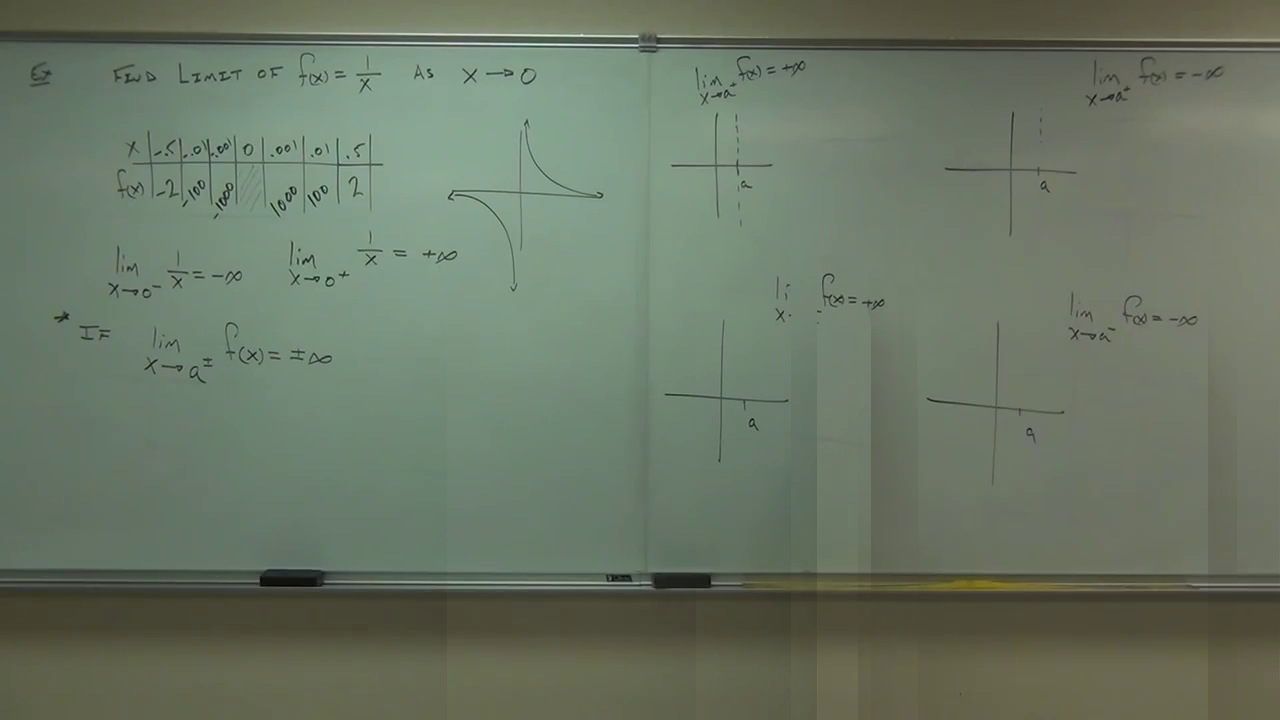 Ex FIND LIMIT OF f(x) = 1/x AS x → 0
x | -.5 | -.01 | -.001 | 0 | .001 | .01 | .5
f(x) | -2 | -100 | -1000 | | 1000 | 100 | 2
lim x→0⁻ 1/x = -∞ lim x→0⁺ 1/x = +∞
* IF lim x→a± f(x) = ±∞
lim x→a⁺ f(x) = +∞
a
lim x→a⁺ f(x) = -∞
a
li x f(x) = +∞
a
lim x→a⁻ f(x) = -∞
a